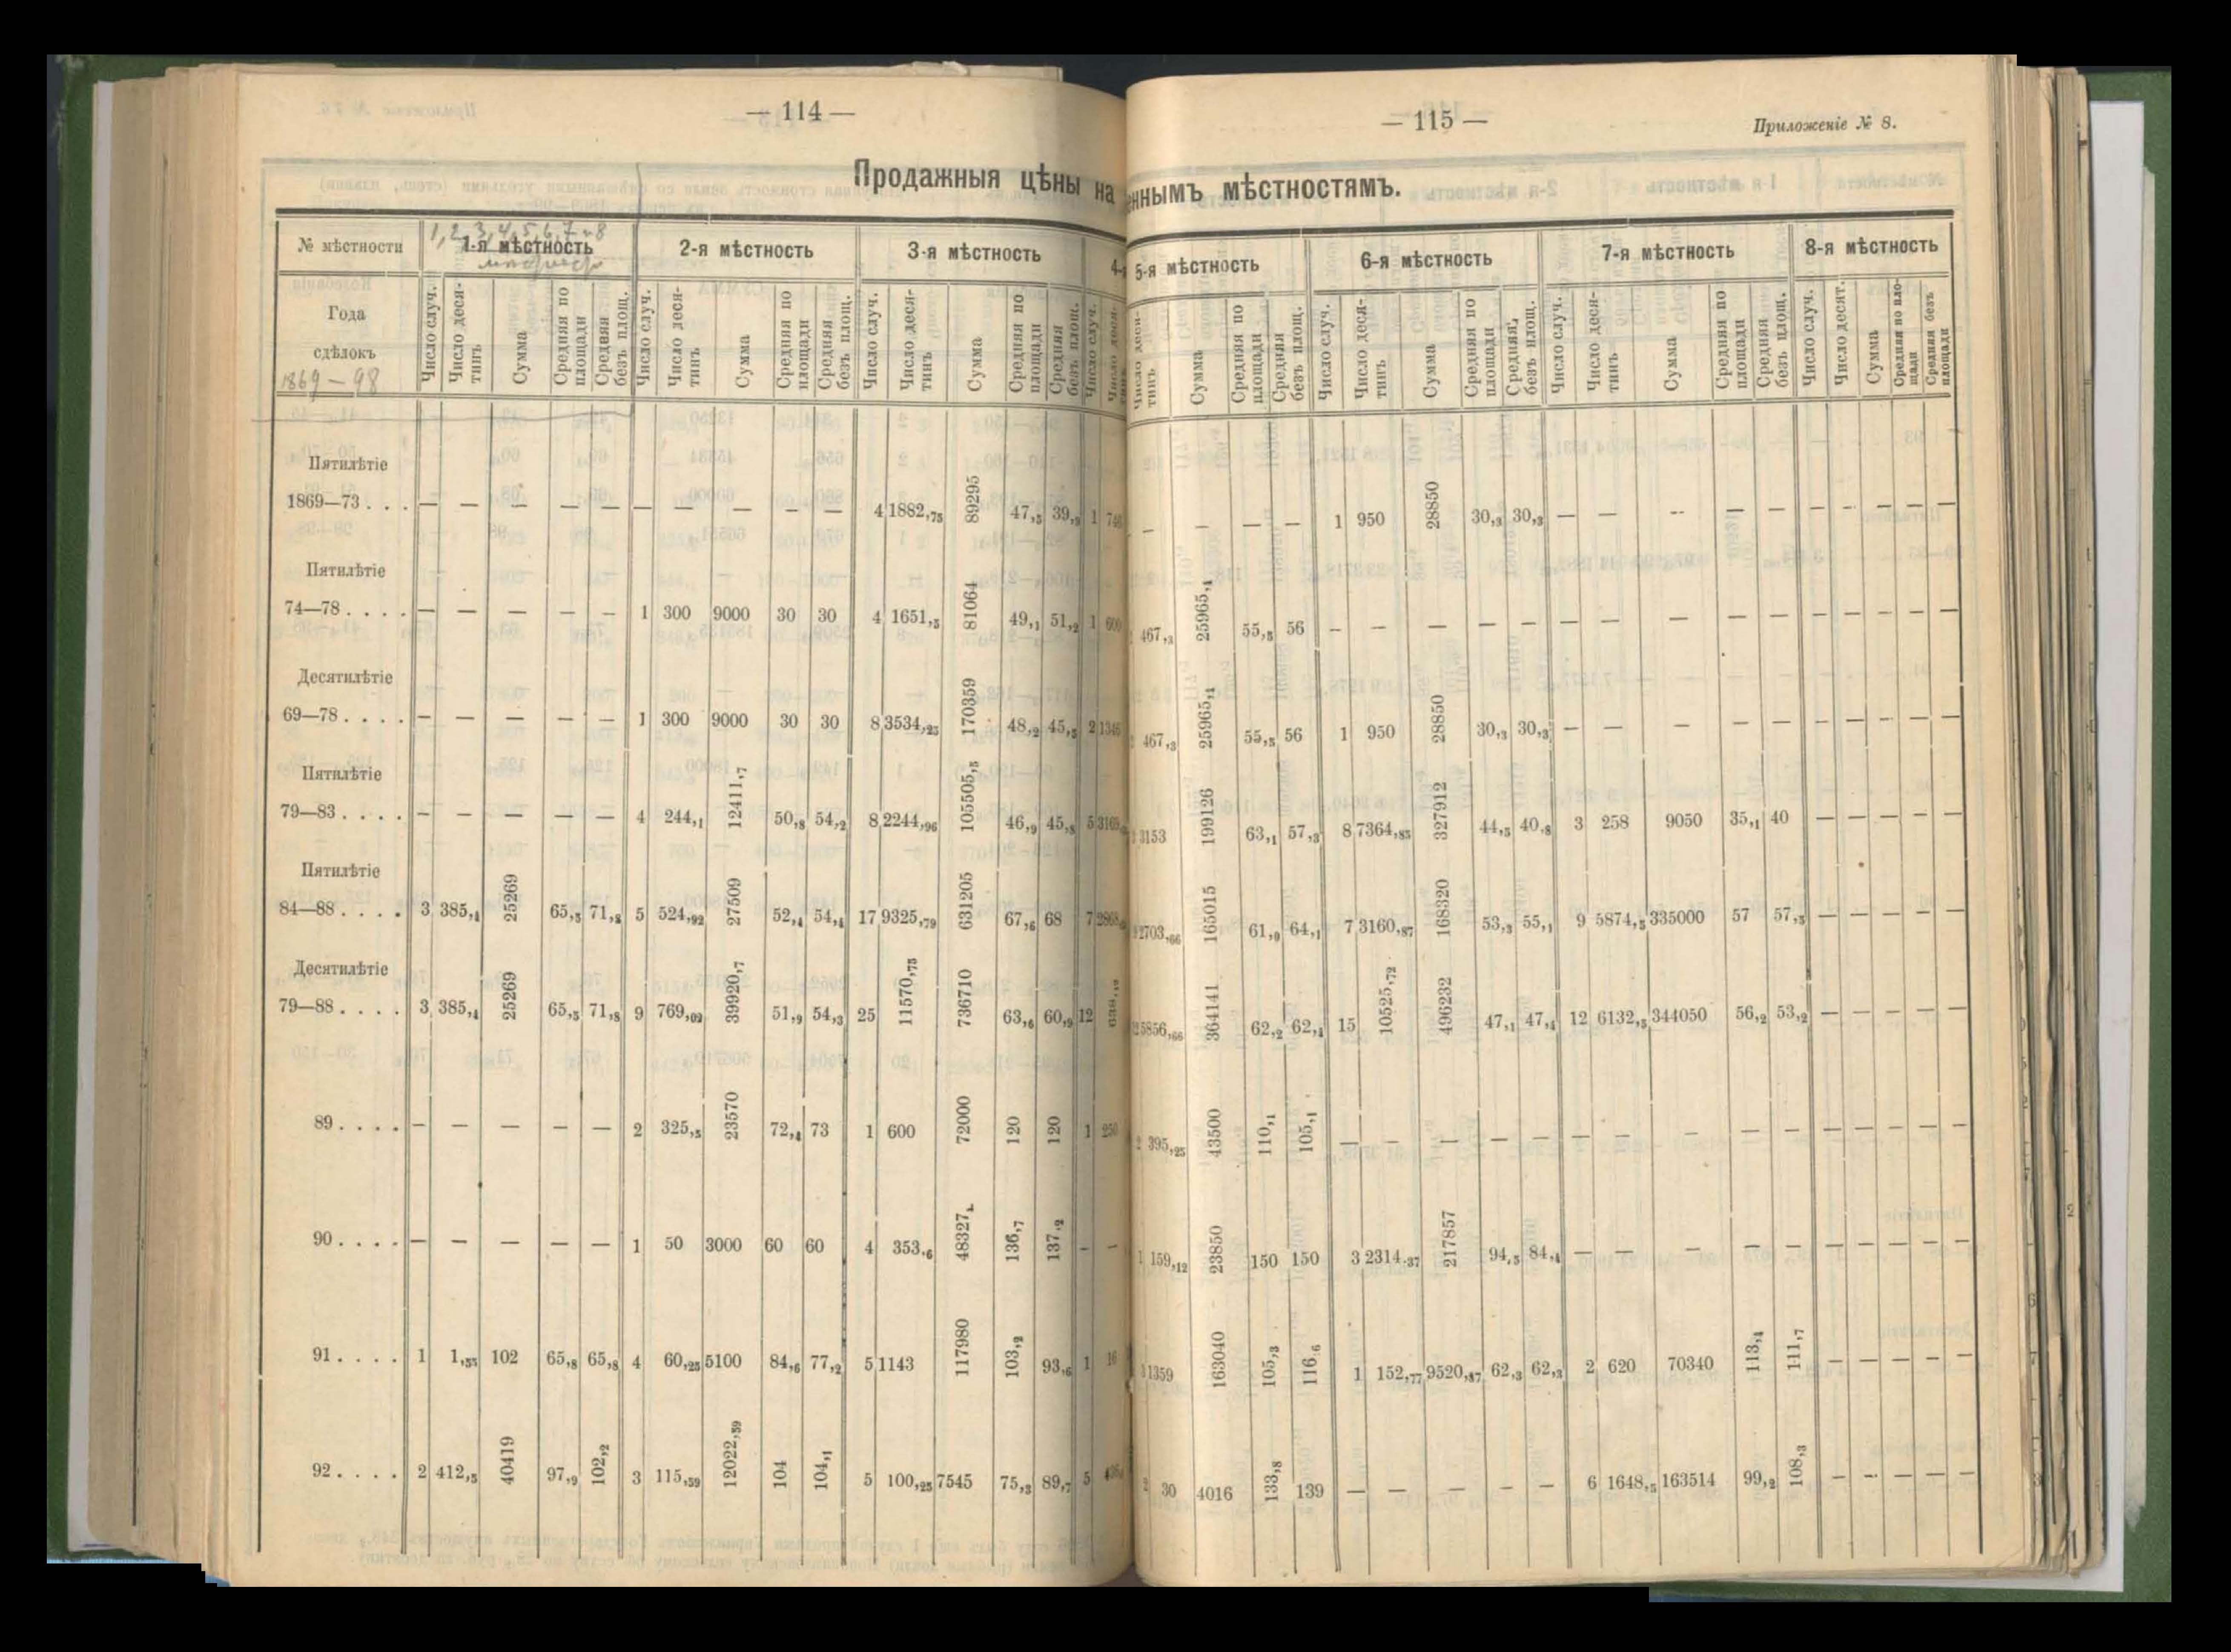 — 114 —
— 115 —
Приложеніе № 8.
Продажныя цѣны на
еннымъ мѣстностямъ.
№ мѣстности 1-я мѣстность 2-я мѣстность 3-я мѣстность 5-я мѣстность 6-я мѣстность 7-я мѣстность 8-я мѣстность
1, 2, 3, 4, 5, 6, 7 и 8
Года сдѣлокъ
1869 — 98
Число случ. Число деся-тинъ Сумма Средняя по площади Средняя безъ площ. Число случ. Число деся-тинъ Сумма Средняя по площади Средняя безъ площ. Число случ. Число деся-тинъ Сумма Средняя по площади Средняя безъ площ. Число случ. Число деся-
Число деся-тинъ Сумма Средняя по площади Средняя безъ площ. Число случ. Число деся-тинъ Сумма Средняя по площади Средняя безъ площ. Число случ. Число деся-тинъ Сумма Средняя по площади Средняя безъ площ. Число случ. Число десят. Сумма Средняя по пло-щади Средняя безъ площади
Пятилѣтіе
1869—73 . . . — — — — — — — — — — 4 1882,75 89295 47,5 39,9 1 — — — — 1 950 28850 30,3 30,3 — — -- — — — — — — —
Пятилѣтіе
74—78 . . . . — — — — — 1 300 9000 30 30 4 1651,5 81064 49,1 51,2 1 600 467,3 25965,4 55,5 56 — — — — — — — — — — — — — — —
Десятилѣтіе
69—78 . . . . — — — — — 1 300 9000 30 30 8 3534,25 170359 48,2 45,5 2 1346 467,3 25965,4 55,5 56 1 950 28850 30,3 30,3 — — — — — — — — — —
Пятилѣтіе
79—83 . . . . — — — — — 4 244,1 12411,7 50,8 54,2 8 2244,96 105505,5 46,9 45,8 5 3153 199126 63,1 57,3 8 7364,85 327912 44,5 40,8 3 258 9050 35,1 40 — — — — —
Пятилѣтіе
84—88 . . . . 3 385,4 25269 65,5 71,8 5 524,92 27509 52,4 54,4 17 9325,79 631205 67,6 68 7 2703,66 165015 61,0 64,1 7 3160,87 168320 53,3 55,1 9 5874,5 335000 57 57,5 — — — — —
Десятилѣтіе
79—88 . . . . 3 385,4 25269 65,5 71,8 9 769,02 39920,7 51,9 54,3 25 11570,75 736710 63,6 60,9 12 5856,66 364141 62,2 62,4 15 10525,72 496232 47,1 47,4 12 6132,5 344050 56,2 53,2 — — — — —
89 . . . . — — — — — 2 325,5 23570 72,4 73 1 600 72000 120 120 1 250 2 395,25 43500 110,1 105,1 — — — — — — — — — — — — — — —
90 . . . . — — — — — 1 50 3000 60 60 4 353,6 48327 136,7 137,2 — — 1 159,12 23850 150 150 3 2314,37 217857 94,5 84,4 — — — — — — — — — —
91 . . . . 1 1,55 102 65,8 65,8 4 60,25 5100 84,6 77,2 5 1143 117980 103,2 93,6 1 16 1359 163040 105,3 116,6 1 152,77 9520,87 62,3 62,3 2 620 70340 113,4 111,7 — — — — —
92 . . . . 2 412,5 40419 97,9 102,2 3 115,59 12022,59 104 104,1 5 100,25 7545 75,3 89,7 5 2 30 4016 133,8 139 — — — — — 6 1648,5 163514 99,2 108,3 — — — — —